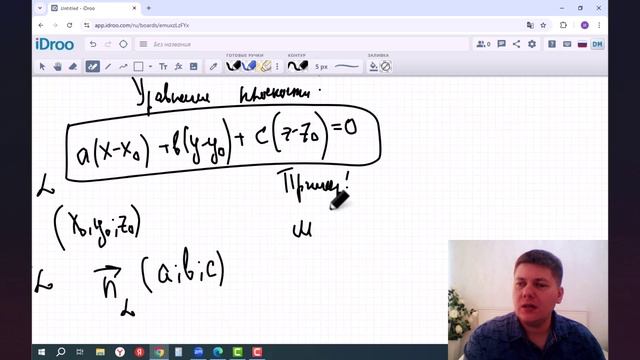 Untitled - iDroo
app.idroo.com/ru/boards/emuxzLzFYx
iDroo
Без названия
0
DM
ГОТОВЫЕ РУЧКИ КОНТУР ЗАЛИВКА
5 px
Уравнение плоскости.
a(x-x₀) + в(y-y₀) + c(z-z₀) = 0
Пример!
(x₀, y₀; z₀)
n (a; в; c)